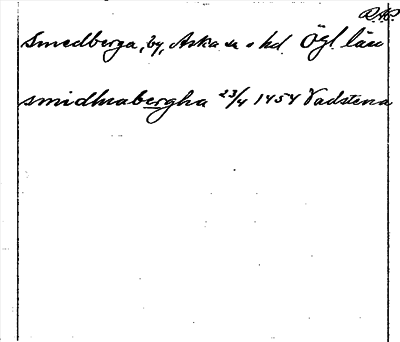 R.A.P.
Smedberga, by, Aska sn o hd. Ögl. län
smidhiabergha 23/4 1454 Vadstena